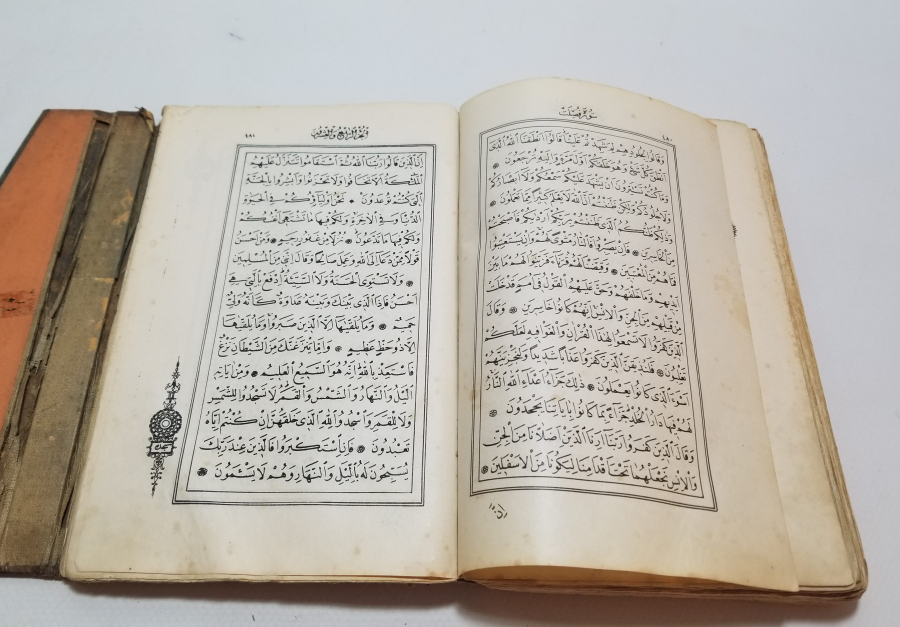 سُورَةُ فُصِّلَتْ
٤٨٠
وَقَالُوا لِجُلُودِهِمْ لِمَ شَهِدْتُمْ عَلَيْنَا قَالُوا اَنْطَقَنَا اللّٰهُ الَّذ۪ي
اَنْطَقَ كُلَّ شَيْءٍ وَهُوَ خَلَقَكُمْ اَوَّلَ مَرَّةٍ وَاِلَيْهِ تُرْجَعُونَ
وَمَا كُنْتُمْ تَسْتَتِرُونَ اَنْ يَشْهَدَ عَلَيْكُمْ سَمْعُكُمْ وَلَا اَبْصَارُكُمْ
وَلَا جُلُودُكُمْ وَلٰكِنْ ظَنَنْتُمْ اَنَّ اللّٰهَ لَا يَعْلَمُ كَث۪يرًا مِمَّا تَعْمَلُونَ
وَذٰلِكُمْ ظَنُّكُمُ الَّذ۪ي ظَنَنْتُمْ بِرَبِّكُمْ اَرْدٰيكُمْ فَاَصْبَحْتُمْ
مِنَ الْخَاسِر۪ينَ فَاِنْ يَصْبِرُوا فَالنَّارُ مَثْوًى لَهُمْ وَاِنْ يَسْتَعْتِبُوا
فَمَا هُمْ مِنَ الْمُعْتَب۪ينَ وَقَيَّضْنَا لَهُمْ قُرَنَاءَ فَزَيَّنُوا لَهُمْ مَا بَيْنَ
اَيْد۪يهِمْ وَمَا خَلْفَهُمْ وَحَقَّ عَلَيْهِمُ الْقَوْلُ ف۪ي اُمَمٍ قَدْ خَلَتْ
مِنْ قَبْلِهِمْ مِنَ الْجِنِّ وَالْاِنْسِ اِنَّهُمْ كَانُوا خَاسِر۪ينَ وَقَالَ
الَّذ۪ينَ كَفَرُوا لَا تَسْمَعُوا لِهٰذَا الْقُرْاٰنِ وَالْغَوْا ف۪يهِ لَعَلَّكُمْ
تَغْلِبُونَ فَلَنُذ۪يقَنَّ الَّذ۪ينَ كَفَرُوا عَذَابًا شَد۪يدًا وَلَنَجْزِيَنَّهُمْ
اَسْوَاَ الَّذ۪ي كَانُوا يَعْمَلُونَ ذٰلِكَ جَزَاءُ اَعْدَاءِ اللّٰهِ النَّارُ
لَهُمْ ف۪يهَا دَارُ الْخُلْدِ جَزَاءً بِمَا كَانُوا بِاٰيَاتِنَا يَجْحَدُونَ
وَقَالَ الَّذ۪ينَ كَفَرُوا رَبَّنَا اَرِنَا الَّذَيْنِ اَضَلَّانَا مِنَ الْجِنِّ
وَالْاِنْسِ نَجْعَلْهُمَا تَحْتَ اَقْدَامِنَا لِيَكُونَا مِنَ الْاَسْفَل۪ينَ
اِنَّ
الجزء الرابع والعشرين
٤٨١
اِنَّ الَّذ۪ينَ قَالُوا رَبُّنَا اللّٰهُ ثُمَّ اسْتَقَامُوا تَتَنَزَّلُ عَلَيْهِمُ
الْمَلٰئِكَةُ اَلَّا تَخَافُوا وَلَا تَحْزَنُوا وَاَبْشِرُوا بِالْجَنَّةِ
الَّت۪ي كُنْتُمْ تُوعَدُونَ نَحْنُ اَوْلِيَاؤُكُمْ فِي الْحَيٰوةِ
الدُّنْيَا وَفِي الْاٰخِرَةِ وَلَكُمْ ف۪يهَا مَا تَشْتَه۪ي اَنْفُسُكُمْ
وَلَكُمْ ف۪يهَا مَا تَدَّعُونَ نُزُلًا مِنْ غَفُورٍ رَح۪يمٍ وَمَنْ اَحْسَنُ
قَوْلًا مِمَّنْ دَعَا اِلَى اللّٰهِ وَعَمِلَ صَالِحًا وَقَالَ اِنَّن۪ي مِنَ الْمُسْلِم۪ينَ
وَلَا تَسْتَوِي الْحَسَنَةُ وَلَا السَّيِّئَةُ اِدْفَعْ بِالَّت۪ي هِيَ
اَحْسَنُ فَاِذَا الَّذ۪ي بَيْنَكَ وَبَيْنَهُ عَدَاوَةٌ كَاَنَّهُ وَلِيٌّ
حَم۪يمٌ وَمَا يُلَقّٰيهَا اِلَّا الَّذ۪ينَ صَبَرُوا وَمَا يُلَقّٰيهَا
اِلَّا ذُو حَظٍّ عَظ۪يمٍ وَاِمَّا يَنْزَغَنَّكَ مِنَ الشَّيْطَانِ نَزْغٌ
فَاسْتَعِذْ بِاللّٰهِ اِنَّهُ هُوَ السَّم۪يعُ الْعَل۪يمُ وَمِنْ اٰيَاتِهِ
الَّيْلُ وَالنَّهَارُ وَالشَّمْسُ وَالْقَمَرُ لَا تَسْجُدُوا لِلشَّمْسِ
وَلَا لِلْقَمَرِ وَاسْجُدُوا لِلّٰهِ الَّذ۪ي خَلَقَهُنَّ اِنْ كُنْتُمْ اِيَّاهُ
تَعْبُدُونَ فَاِنِ اسْتَكْبَرُوا فَالَّذ۪ينَ عِنْدَ رَبِّكَ
يُسَبِّحُونَ لَهُ بِالَّيْلِ وَالنَّهَارِ وَهُمْ لَا يَسْـَٔمُونَ
سجده